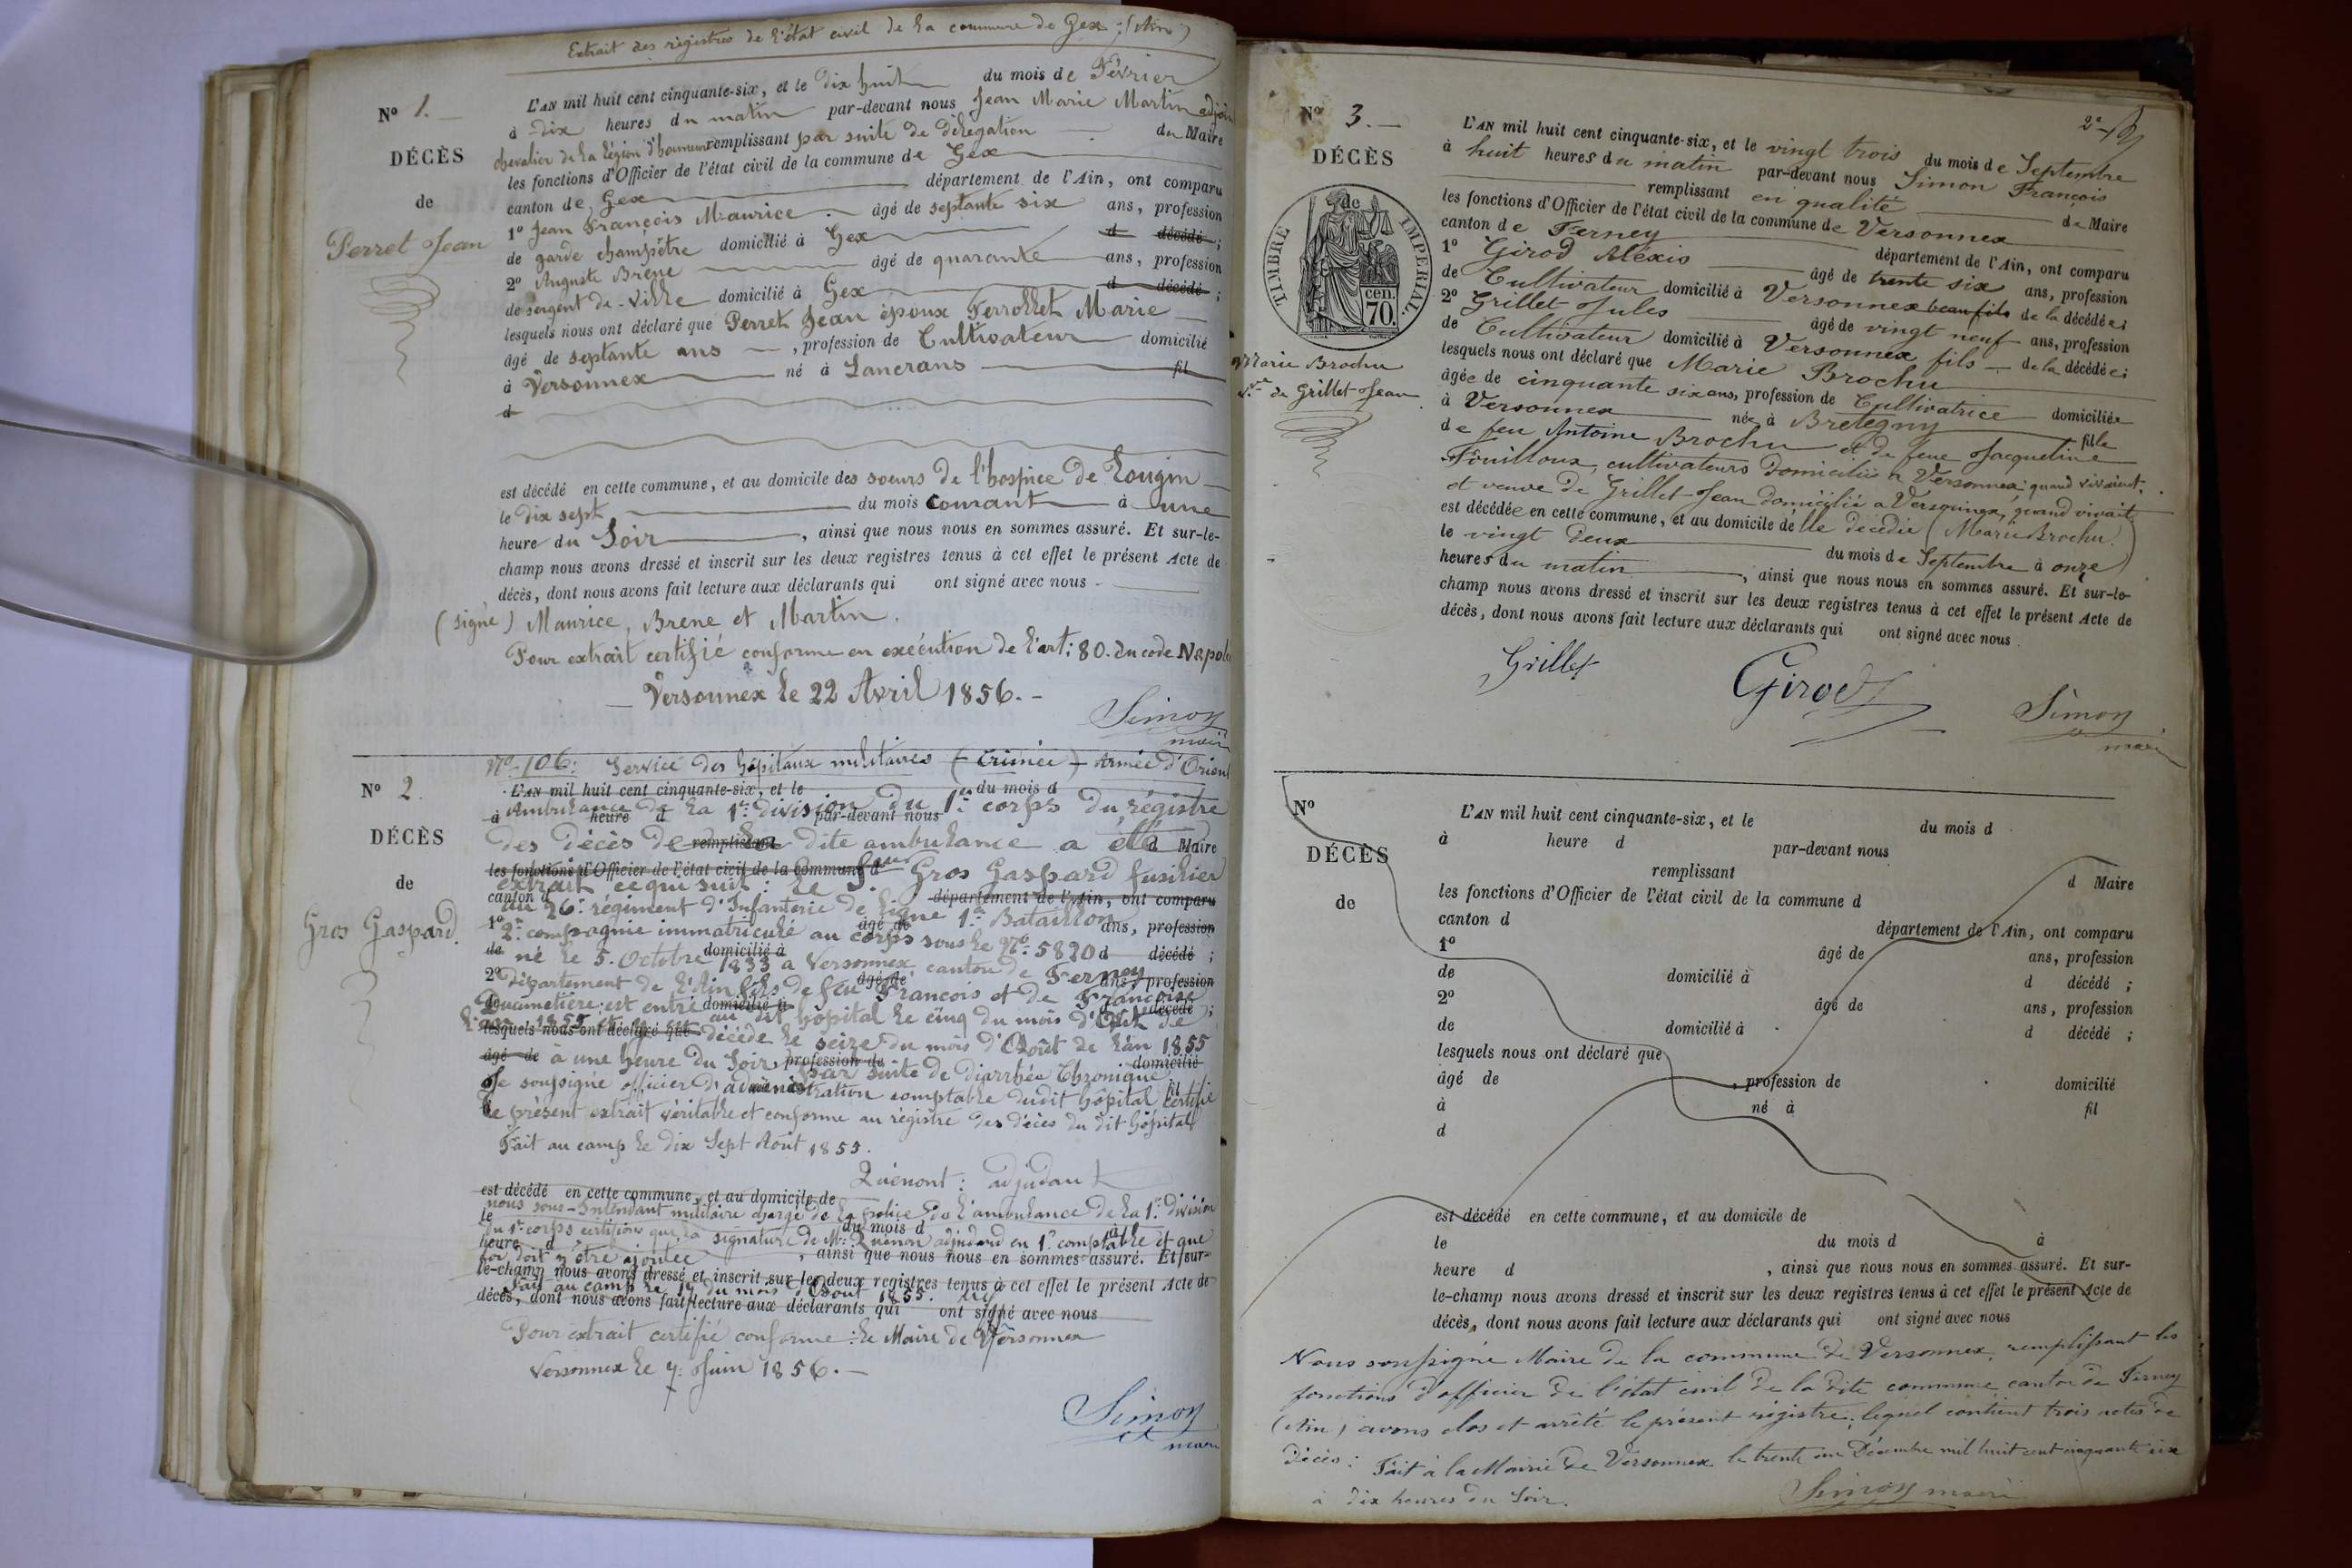 Extrait des régistres de l'état civil de la commune de Gex : (Ain)
N° 1. —
DÉCÈS
de
Perret Jean
L'AN mil huit cent cinquante-six, et le dix huit du mois de Février
à dix heures du matin par-devant nous Jean Marie Martin adjoint
chevalier de la Légion d'honneur remplissant par suite de délégation du Maire
les fonctions d'Officier de l'état civil de la commune de Gex
canton de Gex département de l'Ain, ont comparu
1° Jean François Maurice âgé de septante six ans, profession
de garde champêtre domicilié à Gex d décédé ;
2° Auguste Brene âgé de quarante ans, profession
de sergent de-ville domicilié à Gex d décédé ;
lesquels nous ont déclaré que Perret Jean époux Perrollet Marie
âgé de septante ans, profession de Cultivateur domicilié
à Versonnex né à Lancrans fil
d
est décédé en cette commune, et au domicile des soeurs de l'hospice de Tougin
le dix sept du mois courant à une
heure du Soir, ainsi que nous nous en sommes assuré. Et sur-le-
champ nous avons dressé et inscrit sur les deux registres tenus à cet effet le présent Acte de
décès, dont nous avons fait lecture aux déclarants qui ont signé avec nous
(signé) Maurice, Brene et Martin.
Pour extrait certifié conforme en exécution de l'art: 80. du code Napol
Versonnex le 22 Avril 1856. —
Simon
maire
N° 2.
DÉCÈS
de
Gros Gaspard.
N°-106: Service des hôpitaux militaires (Crimée) Armée d'Orient
L'AN mil huit cent cinquante-six, et le du mois d
Ambulance de la 1re division du 1er corps du régistre
à heure d par-devant nous
des décès de la dite ambulance a été
remplissant d Maire
les fonctions d'Officier de l'état civil de la commune d
extrait ce qui suit : Le Sieur Gros Gaspard fusilier
canton d département de l'Ain, ont comparu
au 26e régiment d'Infanterie de ligne 1er Bataillon
1° âgé de ans, profession
2e compagnie immatriculé au corps sous le N° 5820
de domicilié à d décédé ;
né le 5. Octobre 1833 a Versonnex canton de Ferney
2° âgé de ans, profession
département de l'Ain fils de feu François et de Françoise
de domicilié à d décédé ;
est entré au dit hôpital le cinq du mois d'Août de
lesquels nous ont déclaré que
l'an 1855 décédé le seize du mois d'Août de l'an 1855
âgé de profession de domicilié
à une heure du Soir par suite de diarrhée Chronique
Je soussigné officier d'administration comptable dudit hôpital certifie
le présent extrait véritable et conforme au régistre des décès du dit hôpital
Fait au camp le dix Sept Août 1855.
Quénont : adjudant
est décédé en cette commune, et au domicile de
nous sous-Intendant militaire chargé de la police de l'ambulance de la 1re division
le du mois d à
du 1er corps certifions que la signature de Mr Quénon adjudand en 1er comptable et que
heure d, ainsi que nous nous en sommes assuré. Et sur-
foi doit y être ajoutée
le-champ nous avons dressé et inscrit sur les deux registres tenus à cet effet le présent Acte de
Fait au camp le 17 du mois d'Août 1855.
décès, dont nous avons fait lecture aux déclarants qui ont signé avec nous
Pour extrait certifié conforme : le Maire de Versonnex
Versonnex le 7: Juin 1856. —
Simon
maire
2e
N° 3. —
DÉCÈS
de
TIMBRE IMPÉRIAL
cen.
70.
Marie Brochu
Ve de Grillet Jean
L'AN mil huit cent cinquante-six, et le vingt trois du mois de Septembre
à huit heures du matin par-devant nous Simon François
remplissant en qualité de Maire
les fonctions d'Officier de l'état civil de la commune de Versonnex
canton de Ferney département de l'Ain, ont comparu
1° Girod Alexis âgé de trente six ans, profession
de Cultivateur domicilié à Versonnex beau fils de la décédée ;
2° Grillet Jules âgé de vingt neuf ans, profession
de Cultivateur domicilié à Versonnex fils de la décédée ;
lesquels nous ont déclaré que Marie Brochu
âgée de cinquante six ans, profession de Cultivatrice domiciliée
à Versonnex née à Bretegny fille
de feu Antoine Brochu et de feue Jacqueline
Fouilloux, cultivateurs domiciliés a Versonnex quand vivaient.
et veuve de Grillet Jean domicilié a Versonnex, quand vivait
est décédée en cette commune, et au domicile de lle décédée (Marie Brochu.)
le vingt deux du mois de Septembre à onze
heures du matin, ainsi que nous nous en sommes assuré. Et sur-le-
champ nous avons dressé et inscrit sur les deux registres tenus à cet effet le présent Acte de
décès, dont nous avons fait lecture aux déclarants qui ont signé avec nous
Grillet Girod Simon
maire
N°
DÉCÈS
de
L'AN mil huit cent cinquante-six, et le du mois d
à heure d par-devant nous
remplissant d Maire
les fonctions d'Officier de l'état civil de la commune d
canton d département de l'Ain, ont comparu
1° âgé de ans, profession
de domicilié à d décédé ;
2° âgé de ans, profession
de domicilié à d décédé ;
lesquels nous ont déclaré que
âgé de, profession de domicilié
à né à fil
d
est décédé en cette commune, et au domicile de
le du mois d à
heure d, ainsi que nous nous en sommes assuré. Et sur-
le-champ nous avons dressé et inscrit sur les deux registres tenus à cet effet le présent Acte de
décès, dont nous avons fait lecture aux déclarants qui ont signé avec nous
Nous soussigné Maire de la commune de Versonnex, remplissant les
fonctions d'officier de l'état civil de la dite commune canton de Ferney
(Ain) avons clos et arrêté le présent régistre, lequel contient trois actes de
Décès : Fait à la Mairie de Versonnex le trente un Décembre mil huit cent cinquante six
à dix heures du Soir.
Simon maire